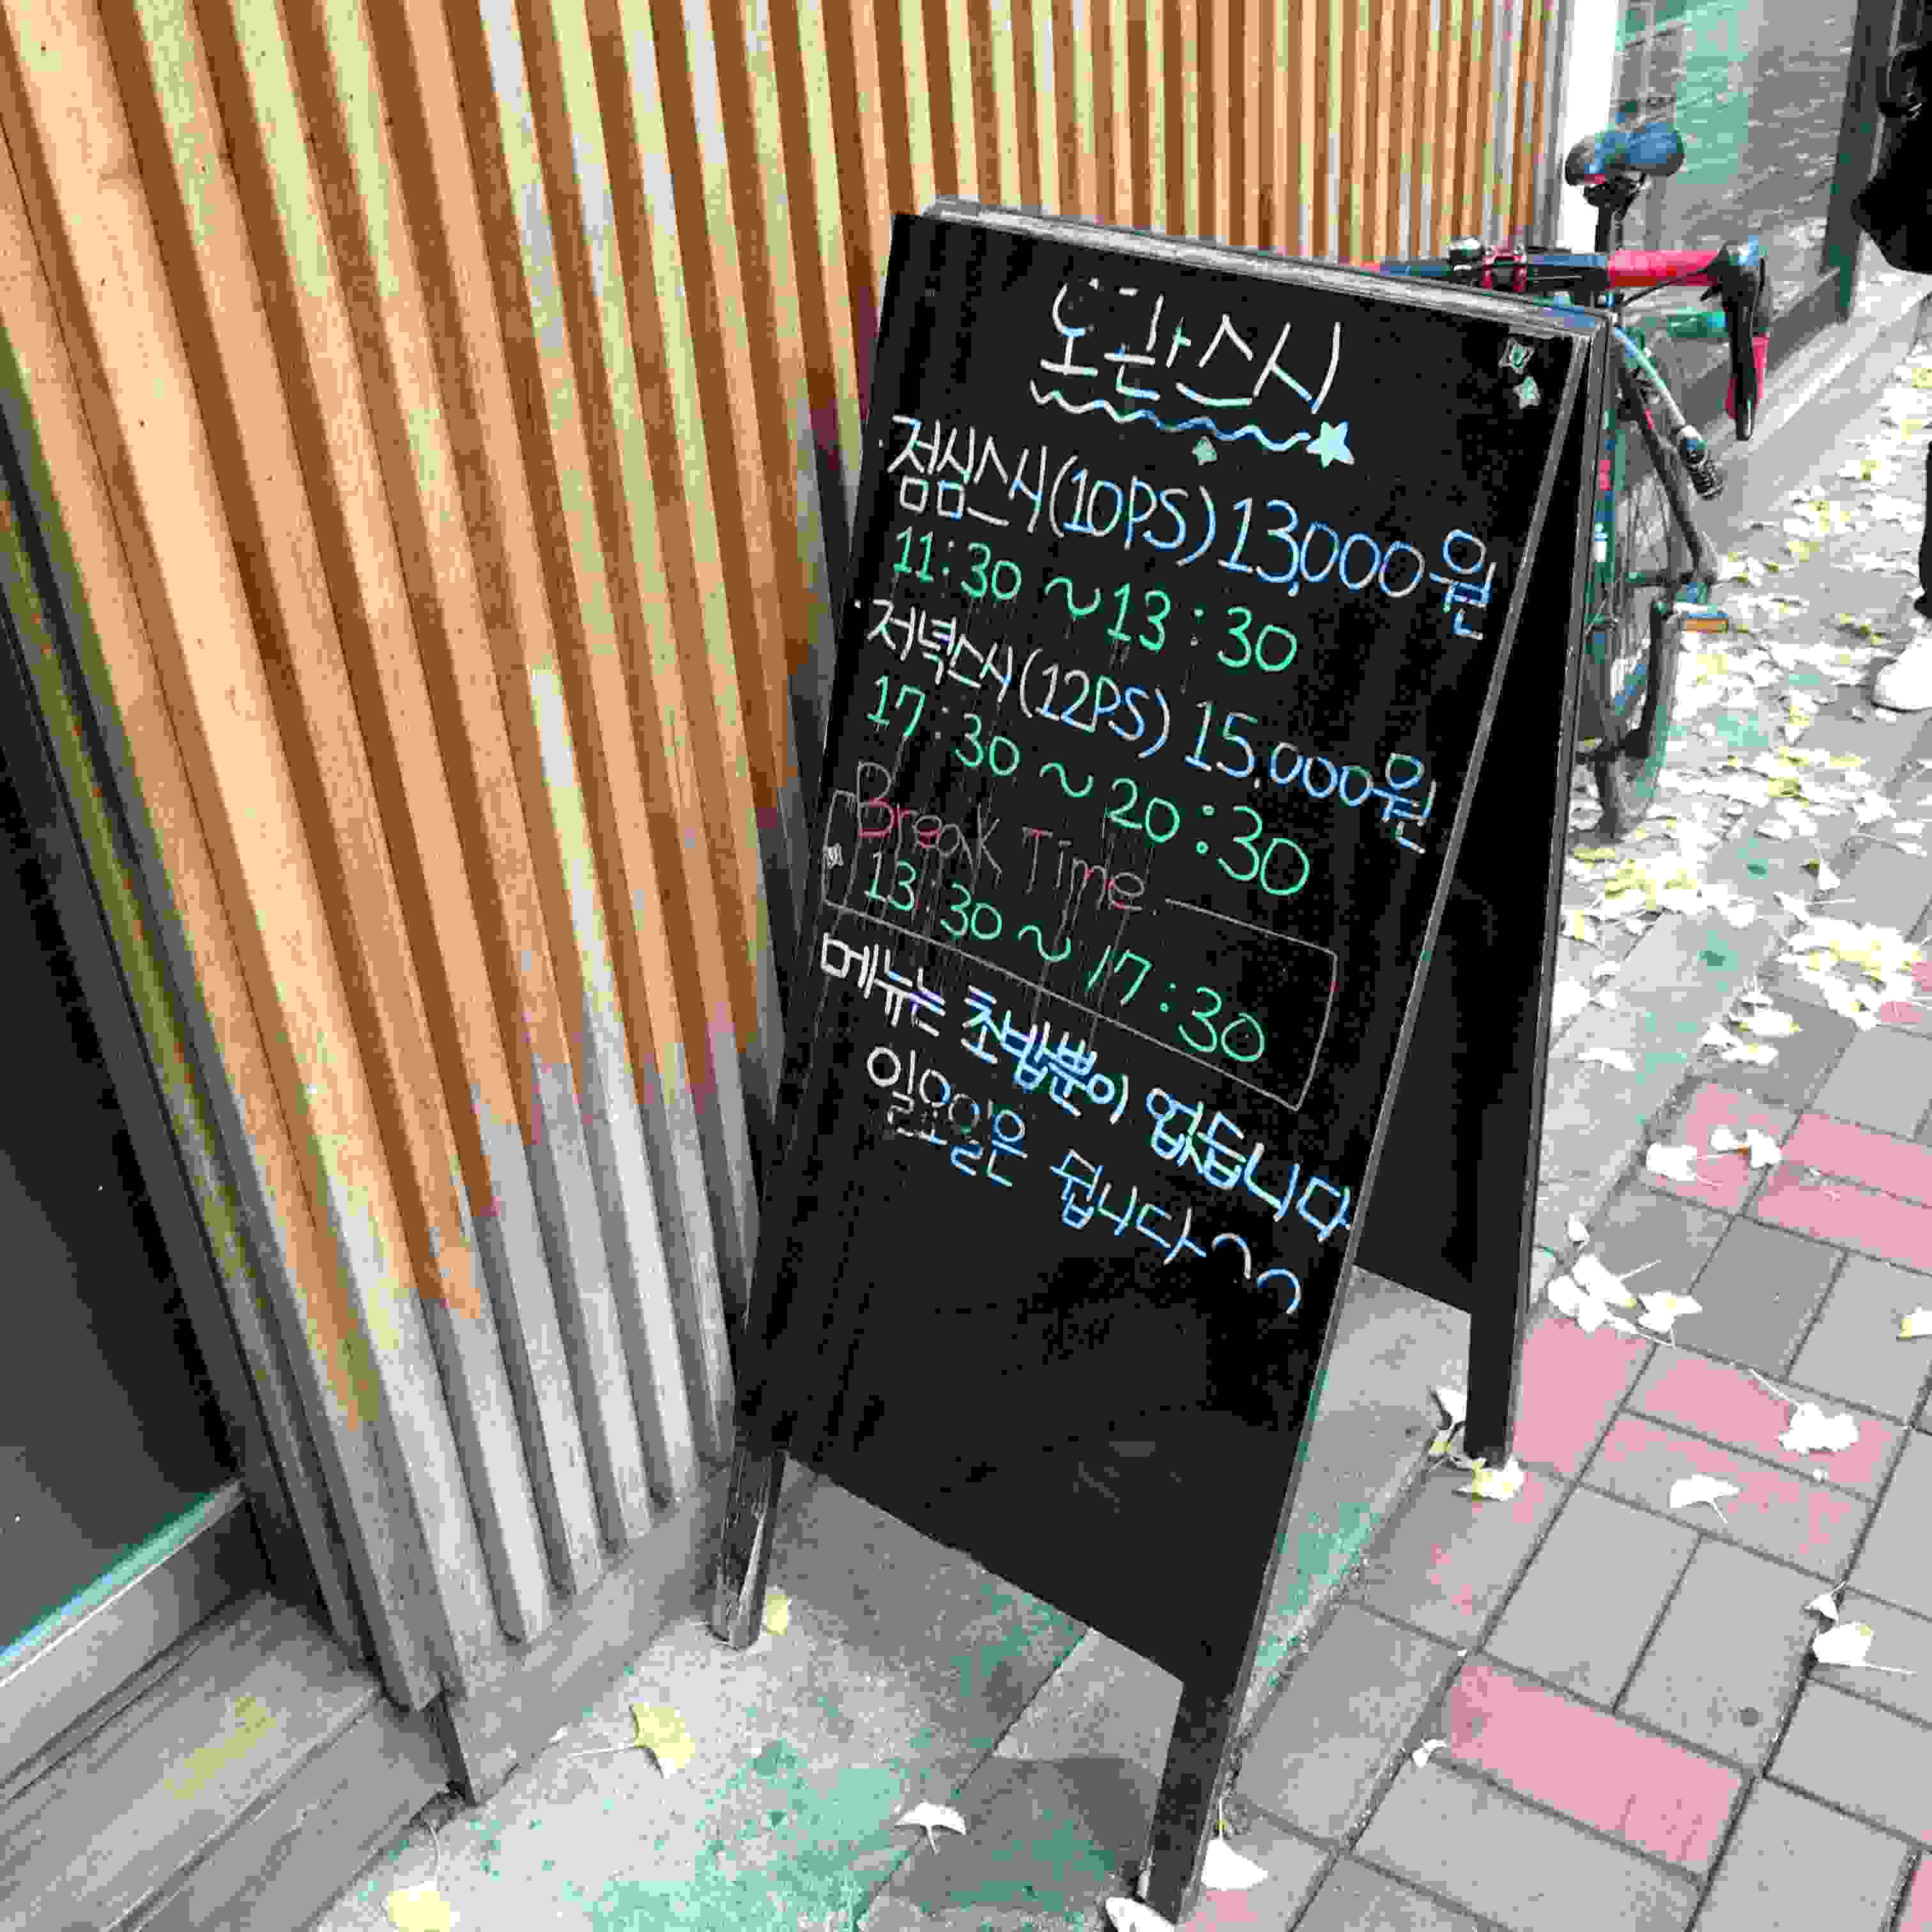 · 점심스시(10PS) 13,000원
11:30 ~ 13:30
· 저녁스시(12PS) 15,000원
17:30 ~ 20:30
Break Time
13:30 ~ 17:30
메뉴는 초밥뿐이 없듭니다
일요일은 쉽니다~~